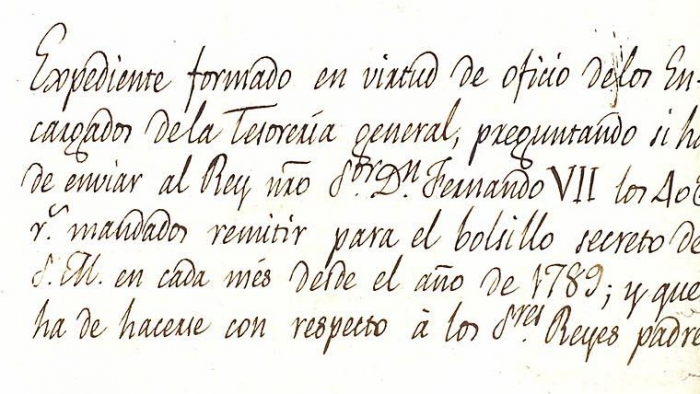 Expediente formado en virtud de oficio de los En-
cargados de la Tesorería general, preguntando si ha
de enviar al Rey nrõ S.or D.n Fernando VII los
r.s mandados remitir para el bolsillo secreto de
S. M. en cada més desde el año de 1789; y que
ha de hacerse con respecto à los S.res Reyes padre